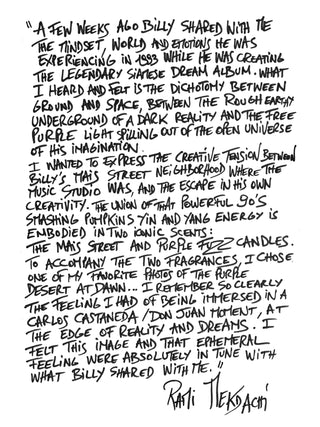 "A FEW WEEKS AGO BILLY SHARED WITH ME
THE MINDSET, WORLD AND EMOTIONS HE WAS
EXPERIENCING IN 1993 WHILE HE WAS CREATING
THE LEGENDARY SIAMESE DREAM ALBUM. WHAT
I HEARD AND FELT IS THE DICHOTOMY BETWEEN
GROUND AND SPACE, BETWEEN THE ROUGH EARTHY
UNDERGROUND OF A DARK REALITY AND THE FREE
PURPLE LIGHT SPILLING OUT OF THE OPEN UNIVERSE
OF HIS IMAGINATION.
I WANTED TO EXPRESS THE CREATIVE TENSION BETWEEN
BILLY'S MAIS STREET NEIGHBORHOOD WHERE THE
MUSIC STUDIO WAS, AND THE ESCAPE IN HIS OWN
CREATIVITY. THE UNION OF THAT POWERFUL 90'S
SMASHING PUMPKINS YIN AND YANG ENERGY IS
EMBODIED IN TWO ICONIC SCENTS:
THE MAIS STREET AND PURPLE FUZZ CANDLES.
TO ACCOMPANY THE TWO FRAGRANCES, I CHOSE
ONE OF MY FAVORITE PHOTOS OF THE PURPLE
DESERT AT DAWN... I REMEMBER SO CLEARLY
THE FEELING I HAD OF BEING IMMERSED IN A
CARLOS CASTANEDA / DON JUAN MOMENT, AT
THE EDGE OF REALITY AND DREAMS. I
FELT THIS IMAGE AND THAT EPHEMERAL
FEELING WERE ABSOLUTELY IN TUNE WITH
WHAT BILLY SHARED WITH ME."
RAMI MEKDACHI